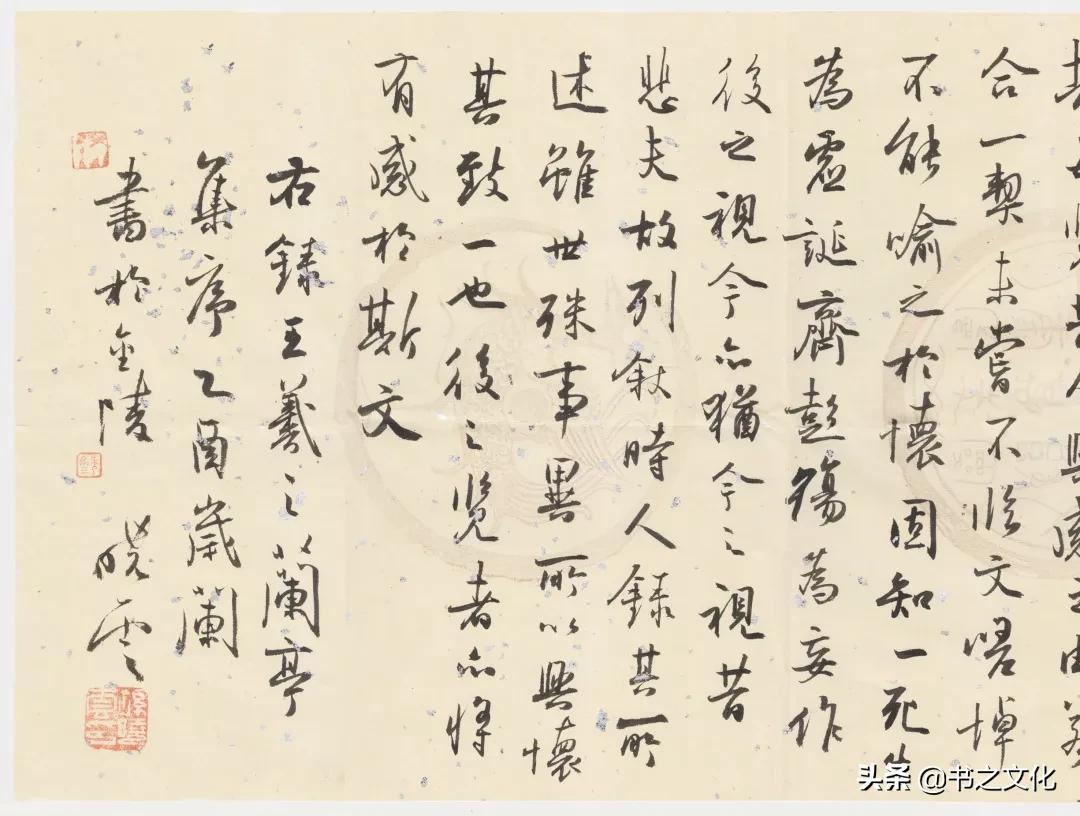 人興感之由若
合一契未嘗不临文嗟悼
不能喻之於懷固知一死生
為虛誕齊彭殤為妄作
後之視今亦猶今之視昔
悲夫故列敘時人錄其所
述雖世殊事異所以興懷
其致一也後之览者亦将
有感於斯文
右錄王羲之蘭亭
集序乙酉歲闌
書於金陵 曉雲
头条 @书之文化